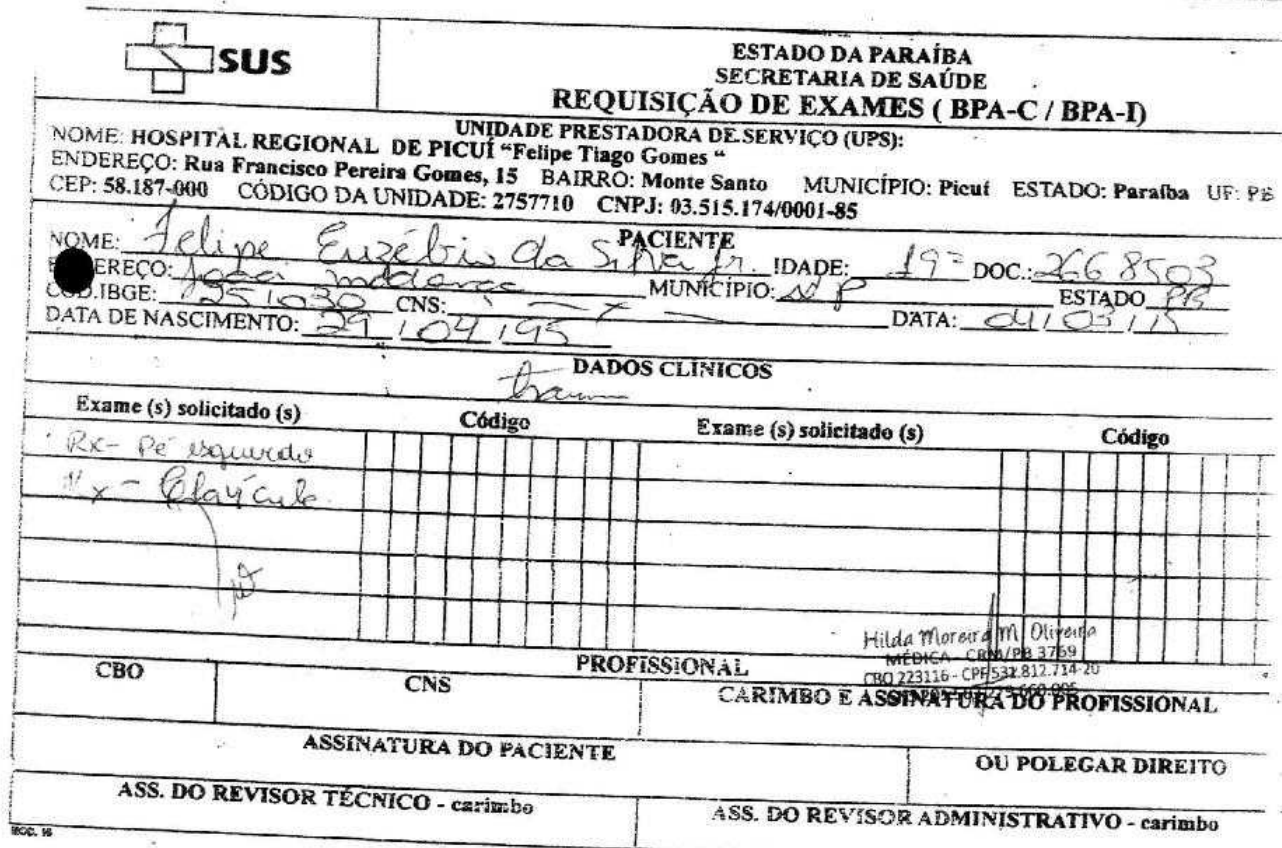 SUS
ESTADO DA PARAÍBA
SECRETARIA DE SAÚDE
REQUISIÇÃO DE EXAMES ( BPA-C / BPA-I)
UNIDADE PRESTADORA DE SERVIÇO (UPS):
NOME: HOSPITAL REGIONAL DE PICUÍ “Felipe Tiago Gomes “
ENDEREÇO: Rua Francisco Pereira Gomes, 15 BAIRRO: Monte Santo MUNICÍPIO: Picuí ESTADO: Paraíba UF: PB
CEP: 58.187-000 CÓDIGO DA UNIDADE: 2757710 CNPJ: 03.515.174/0001-85
PACIENTE
NOME: Felipe Euzébio da Silva Jr. IDADE: 19 DOC.: 2668503
EREÇO: MUNICÍPIO: NP ESTADO PB
COD.IBGE: 251030 CNS:
DATA DE NASCIMENTO: 29/04/95 DATA: 04/03/15
DADOS CLÍNICOS
Exame (s) solicitado (s) Código Exame (s) solicitado (s) Código
Rx- Pé esquerdo
Rx - Clavícula
Hilda Moreira M. Oliveira
MÉDICA - CRM/PB 3769
CBO 223116 - CPF 532.812.714-20
PROFISSIONAL
CBO CNS CARIMBO E ASSINATURA DO PROFISSIONAL
ASSINATURA DO PACIENTE OU POLEGAR DIREITO
ASS. DO REVISOR TÉCNICO - carimbo ASS. DO REVISOR ADMINISTRATIVO - carimbo